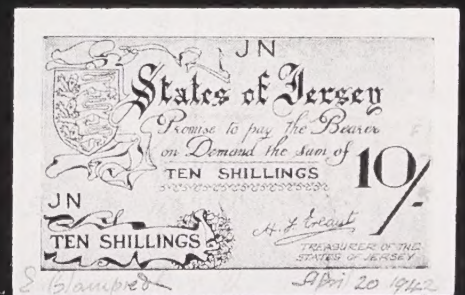 JN
States of Jersey
Promise to pay the Bearer
on Demand the sum of
TEN SHILLINGS
10/-
JN
TEN SHILLINGS
H. F. Ereaut
TREASURER OF THE
STATES OF JERSEY
E. Blampied
April 20 1942